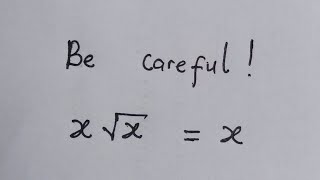 Be careful!
x√x = x